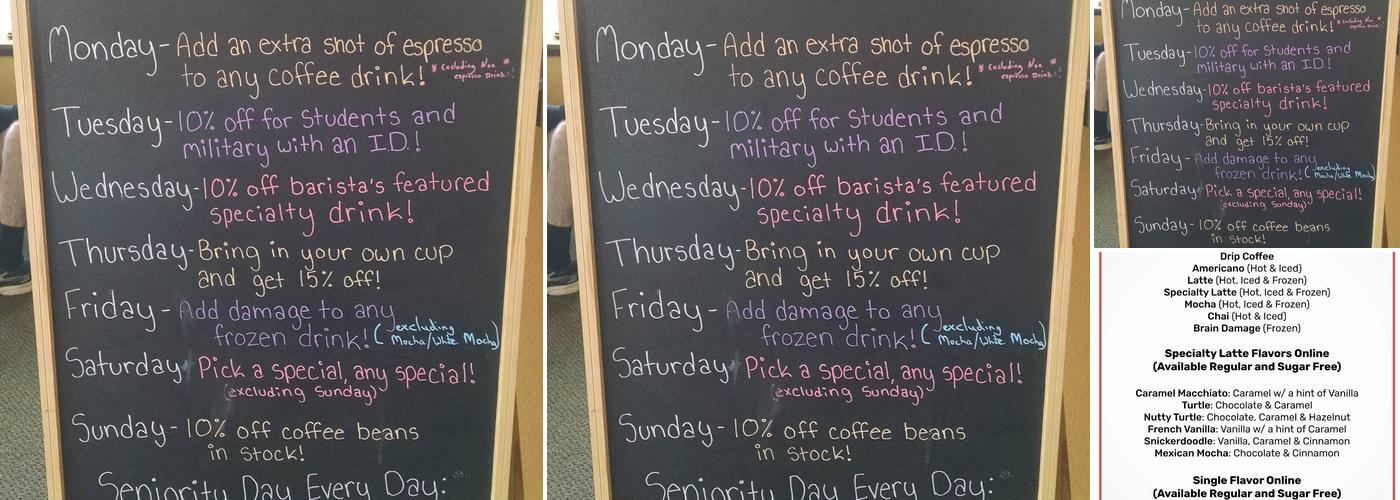 Monday - Add an extra shot of espresso
to any coffee drink! * Excluding Non *
espresso Drink!
Tuesday - 10% off for Students and
military with an I.D.!
Wednesday - 10% off barista's featured
specialty drink!
Thursday - Bring in your own cup
and get 15% off!
Friday - Add damage to any
frozen drink! (excluding
Mocha/White Mocha)
Saturday - Pick a special, any special!
(excluding Sunday)
Sunday - 10% off coffee beans
in stock!
Seniority Day Every Day:
Monday - Add an extra shot of espresso
to any coffee drink! * Excluding Non *
espresso Drink!
Tuesday - 10% off for Students and
military with an I.D.!
Wednesday - 10% off barista's featured
specialty drink!
Thursday - Bring in your own cup
and get 15% off!
Friday - Add damage to any
frozen drink! (excluding
Mocha/White Mocha)
Saturday - Pick a special, any special!
(excluding Sunday)
Sunday - 10% off coffee beans
in stock!
Seniority Day Every Day:
Monday - Add an extra shot of espresso
to any coffee drink! * Excluding Non *
espresso Drink!
Tuesday - 10% off for Students and
military with an I.D.!
Wednesday - 10% off barista's featured
specialty drink!
Thursday - Bring in your own cup
and get 15% off!
Friday - Add damage to any
frozen drink! (excluding
Mocha/White Mocha)
Saturday - Pick a special, any special!
(excluding Sunday)
Sunday - 10% off coffee beans
in stock!
Drip Coffee
Americano (Hot & Iced)
Latte (Hot, Iced & Frozen)
Specialty Latte (Hot, Iced & Frozen)
Mocha (Hot, Iced & Frozen)
Chai (Hot & Iced)
Brain Damage (Frozen)
Specialty Latte Flavors Online
(Available Regular and Sugar Free)
Caramel Macchiato: Caramel w/ a hint of Vanilla
Turtle: Chocolate & Caramel
Nutty Turtle: Chocolate, Caramel & Hazelnut
French Vanilla: Vanilla w/ a hint of Caramel
Snickerdoodle: Vanilla, Caramel & Cinnamon
Mexican Mocha: Chocolate & Cinnamon
Single Flavor Online
(Available Regular and Sugar Free)